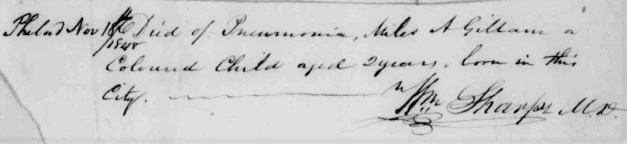 Philad Nov 18th Died of Pneumonia, Miles A Gillam a
1840
Coloured Child aged 2 years, born in this
City.
Wm Sharps M.D.